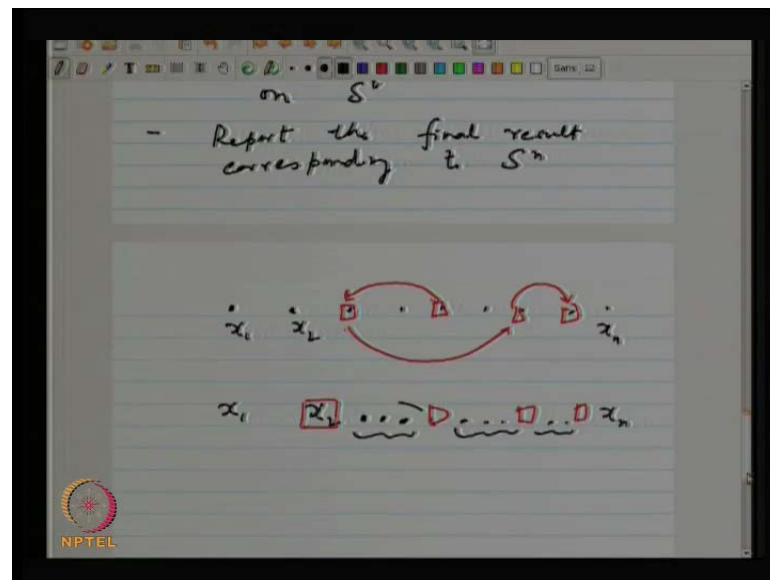 Sans 12
on S^i
- Report the final result
corresponding to S^n
x_1 x_2 x_n
x_1 x_2 x_n
NPTEL